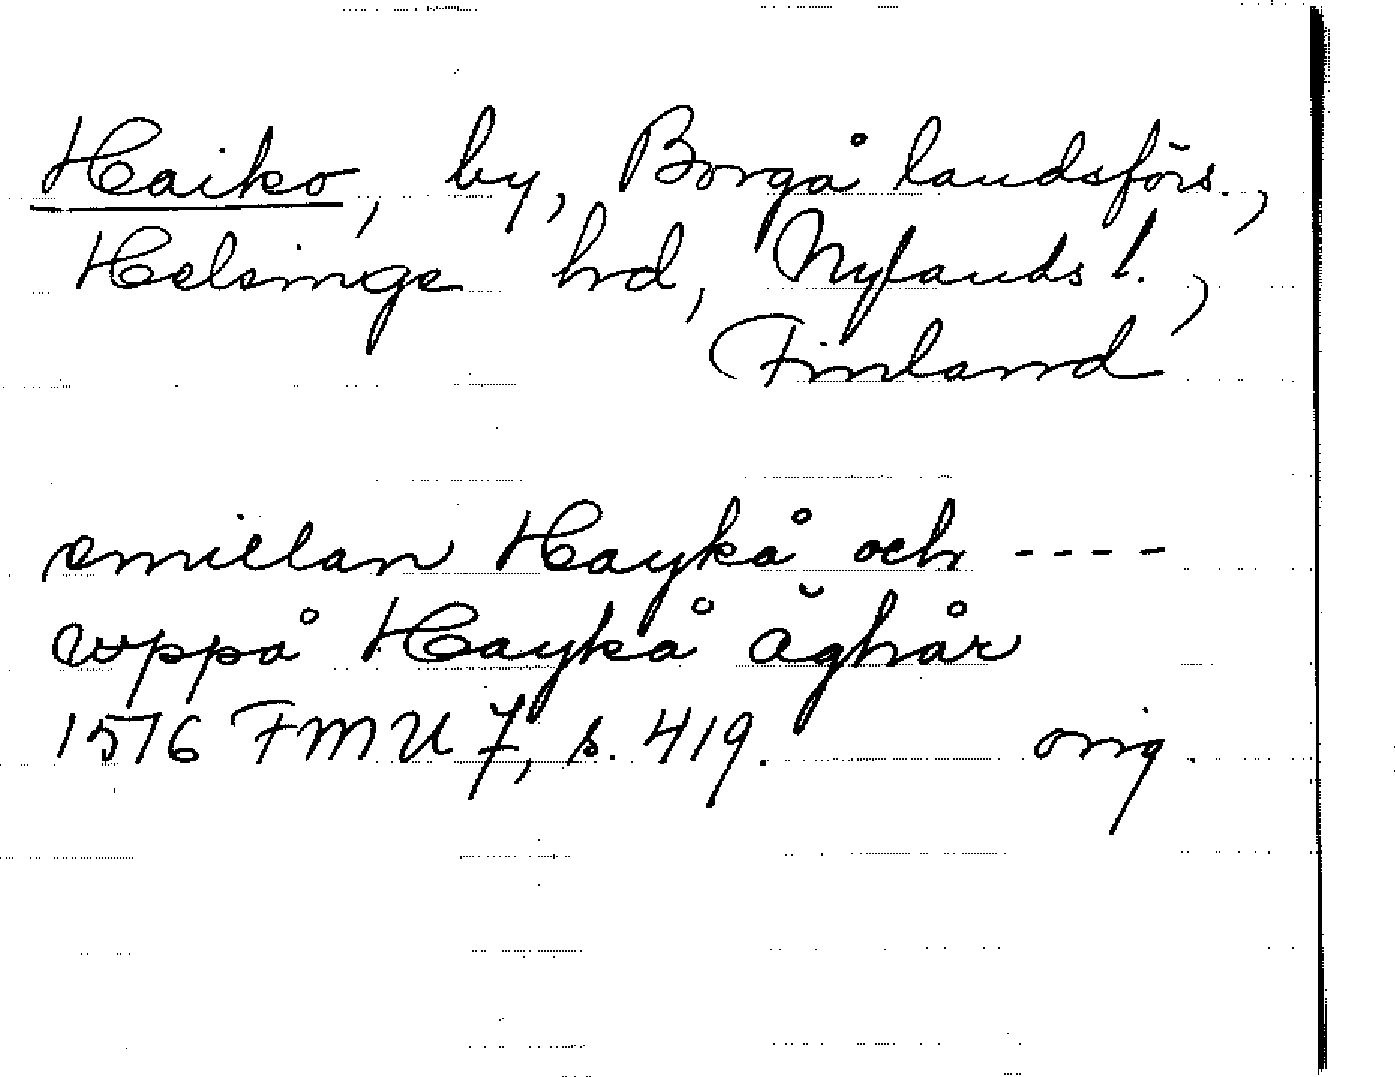 Haiko, by, Borgå landsförs.,
Helsinge hrd, Nylands l.,
Finland
emillan Haykå och ----
wppå Haykå ăghår
1576 FMU 7, s. 419. orig.